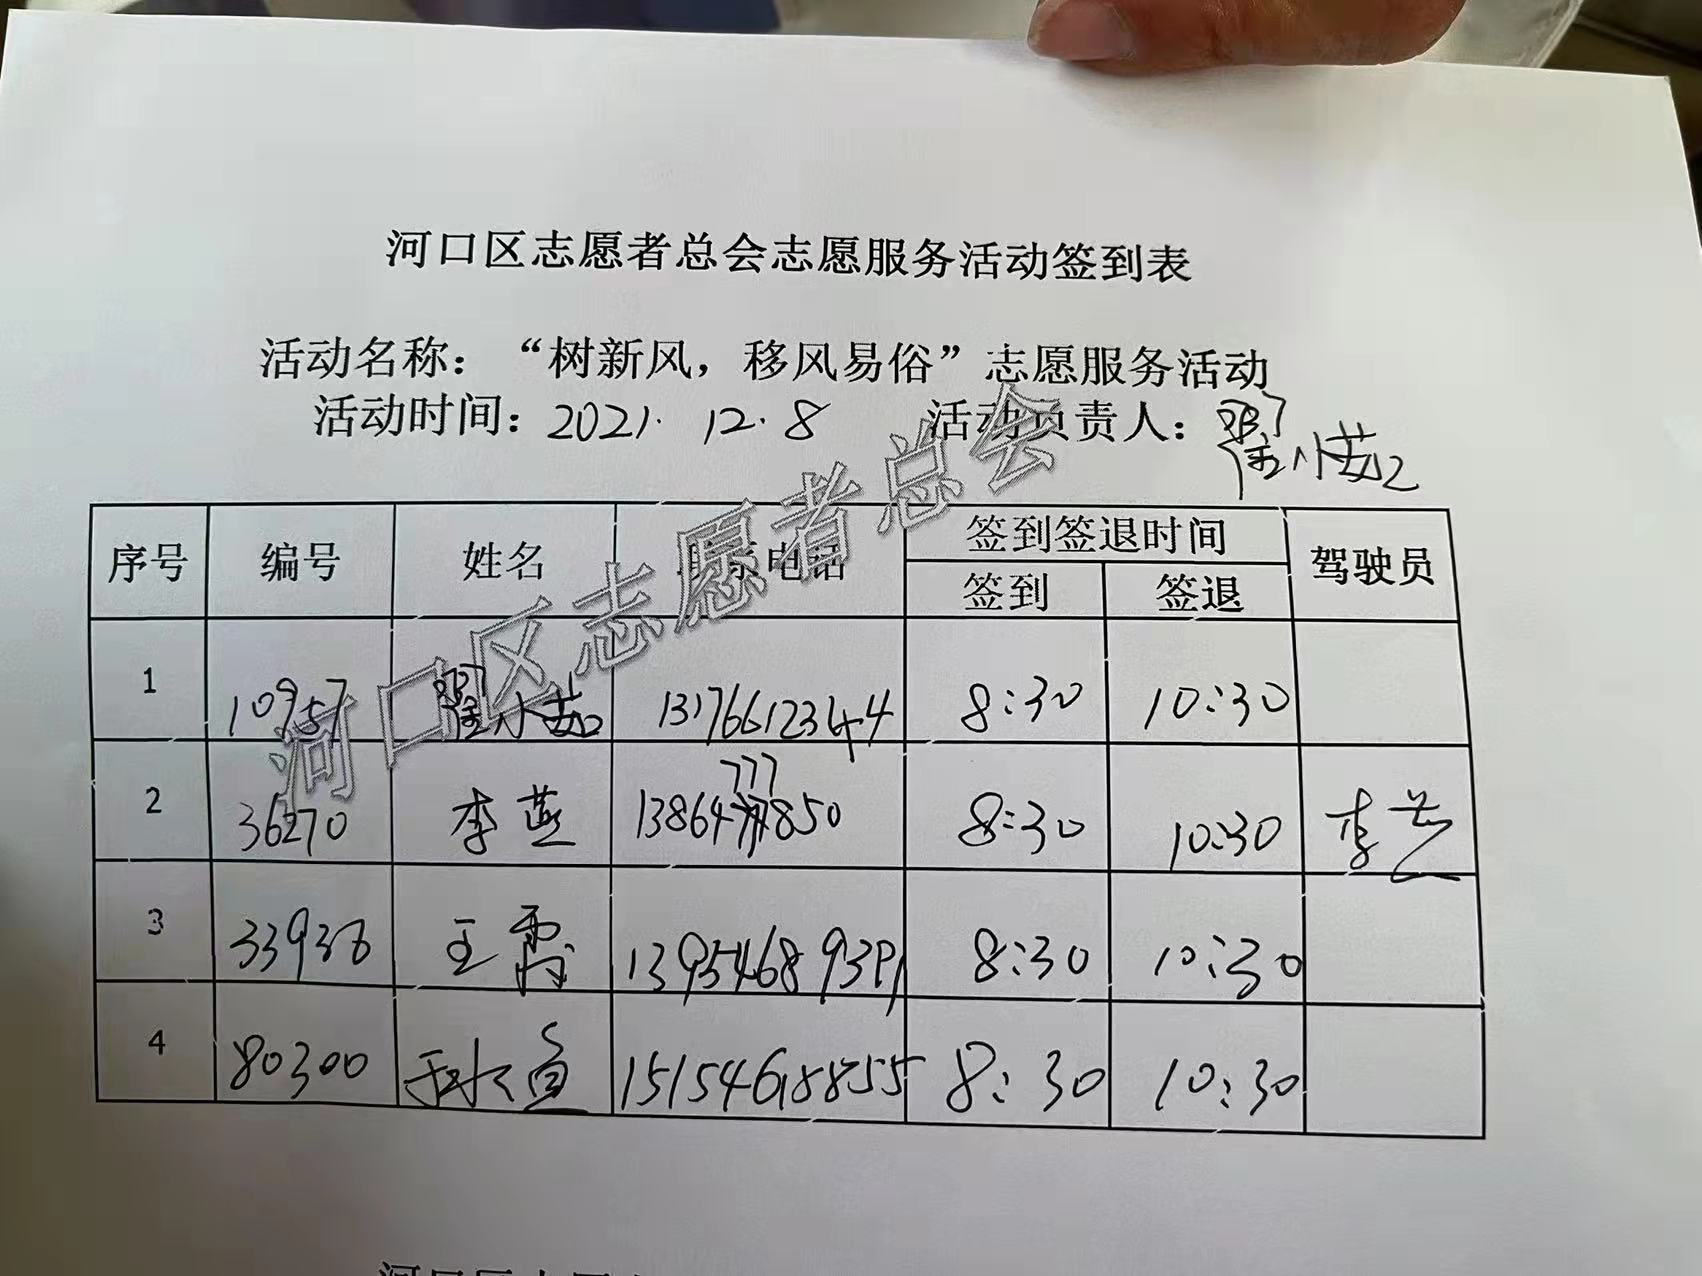 河口区志愿者总会志愿服务活动签到表
活动名称：“树新风，移风易俗”志愿服务活动
活动时间：2021.12.8 活动负责人：翟小茹
序号 编号 姓名 联系电话 签到签退时间 驾驶员
签到 签退
1 10957 翟小茹 13176612344 8:30 10:30
2 36270 李燕 13864777850 8:30 10:30 李燕
3 33938 王霞 8:30 10:30
4 80300 15154618855 8:30 10:30
河口区志愿者总会